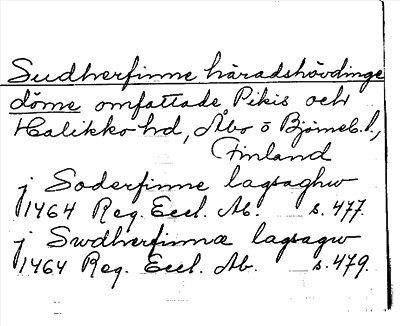 Sudherfinne häradshövdinge
döme omfattade Pikis och
Halikko hd, Åbo o Björneb. l.,
Finland
j Soderfinne lagsaghw
1464 Reg. Eccl. Ab. s. 477.
j Swdherfinnæ lagsagw
1464 Reg. Eccl. Ab. s. 479.